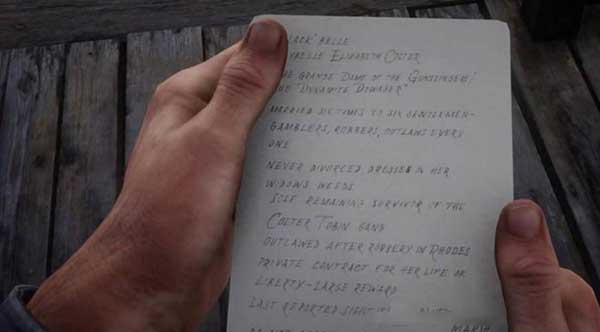 BLACK' BELLE
ELIZABETH COLTER
GRANDE DAME OF THE 'GUNSLINGERS'
"DYNAMITE DOWAGER"
MARRIED SIX TIMES TO SIX GENTLEMEN-
GAMBLERS, ROBBERS, OUTLAWS EVERY
ONE
NEVER DIVORCED DRESSES IN HER
WIDOWS WEEDS
SOLE REMAINING SURVIVOR OF THE
COLTER TOBIN GANG
OUTLAWED AFTER ROBBERY IN RHODES
PRIVATE CONTRACT FOR HER LIFE OR
LIBERTY-LARGE REWARD
LAST REPORTED SIGHTING